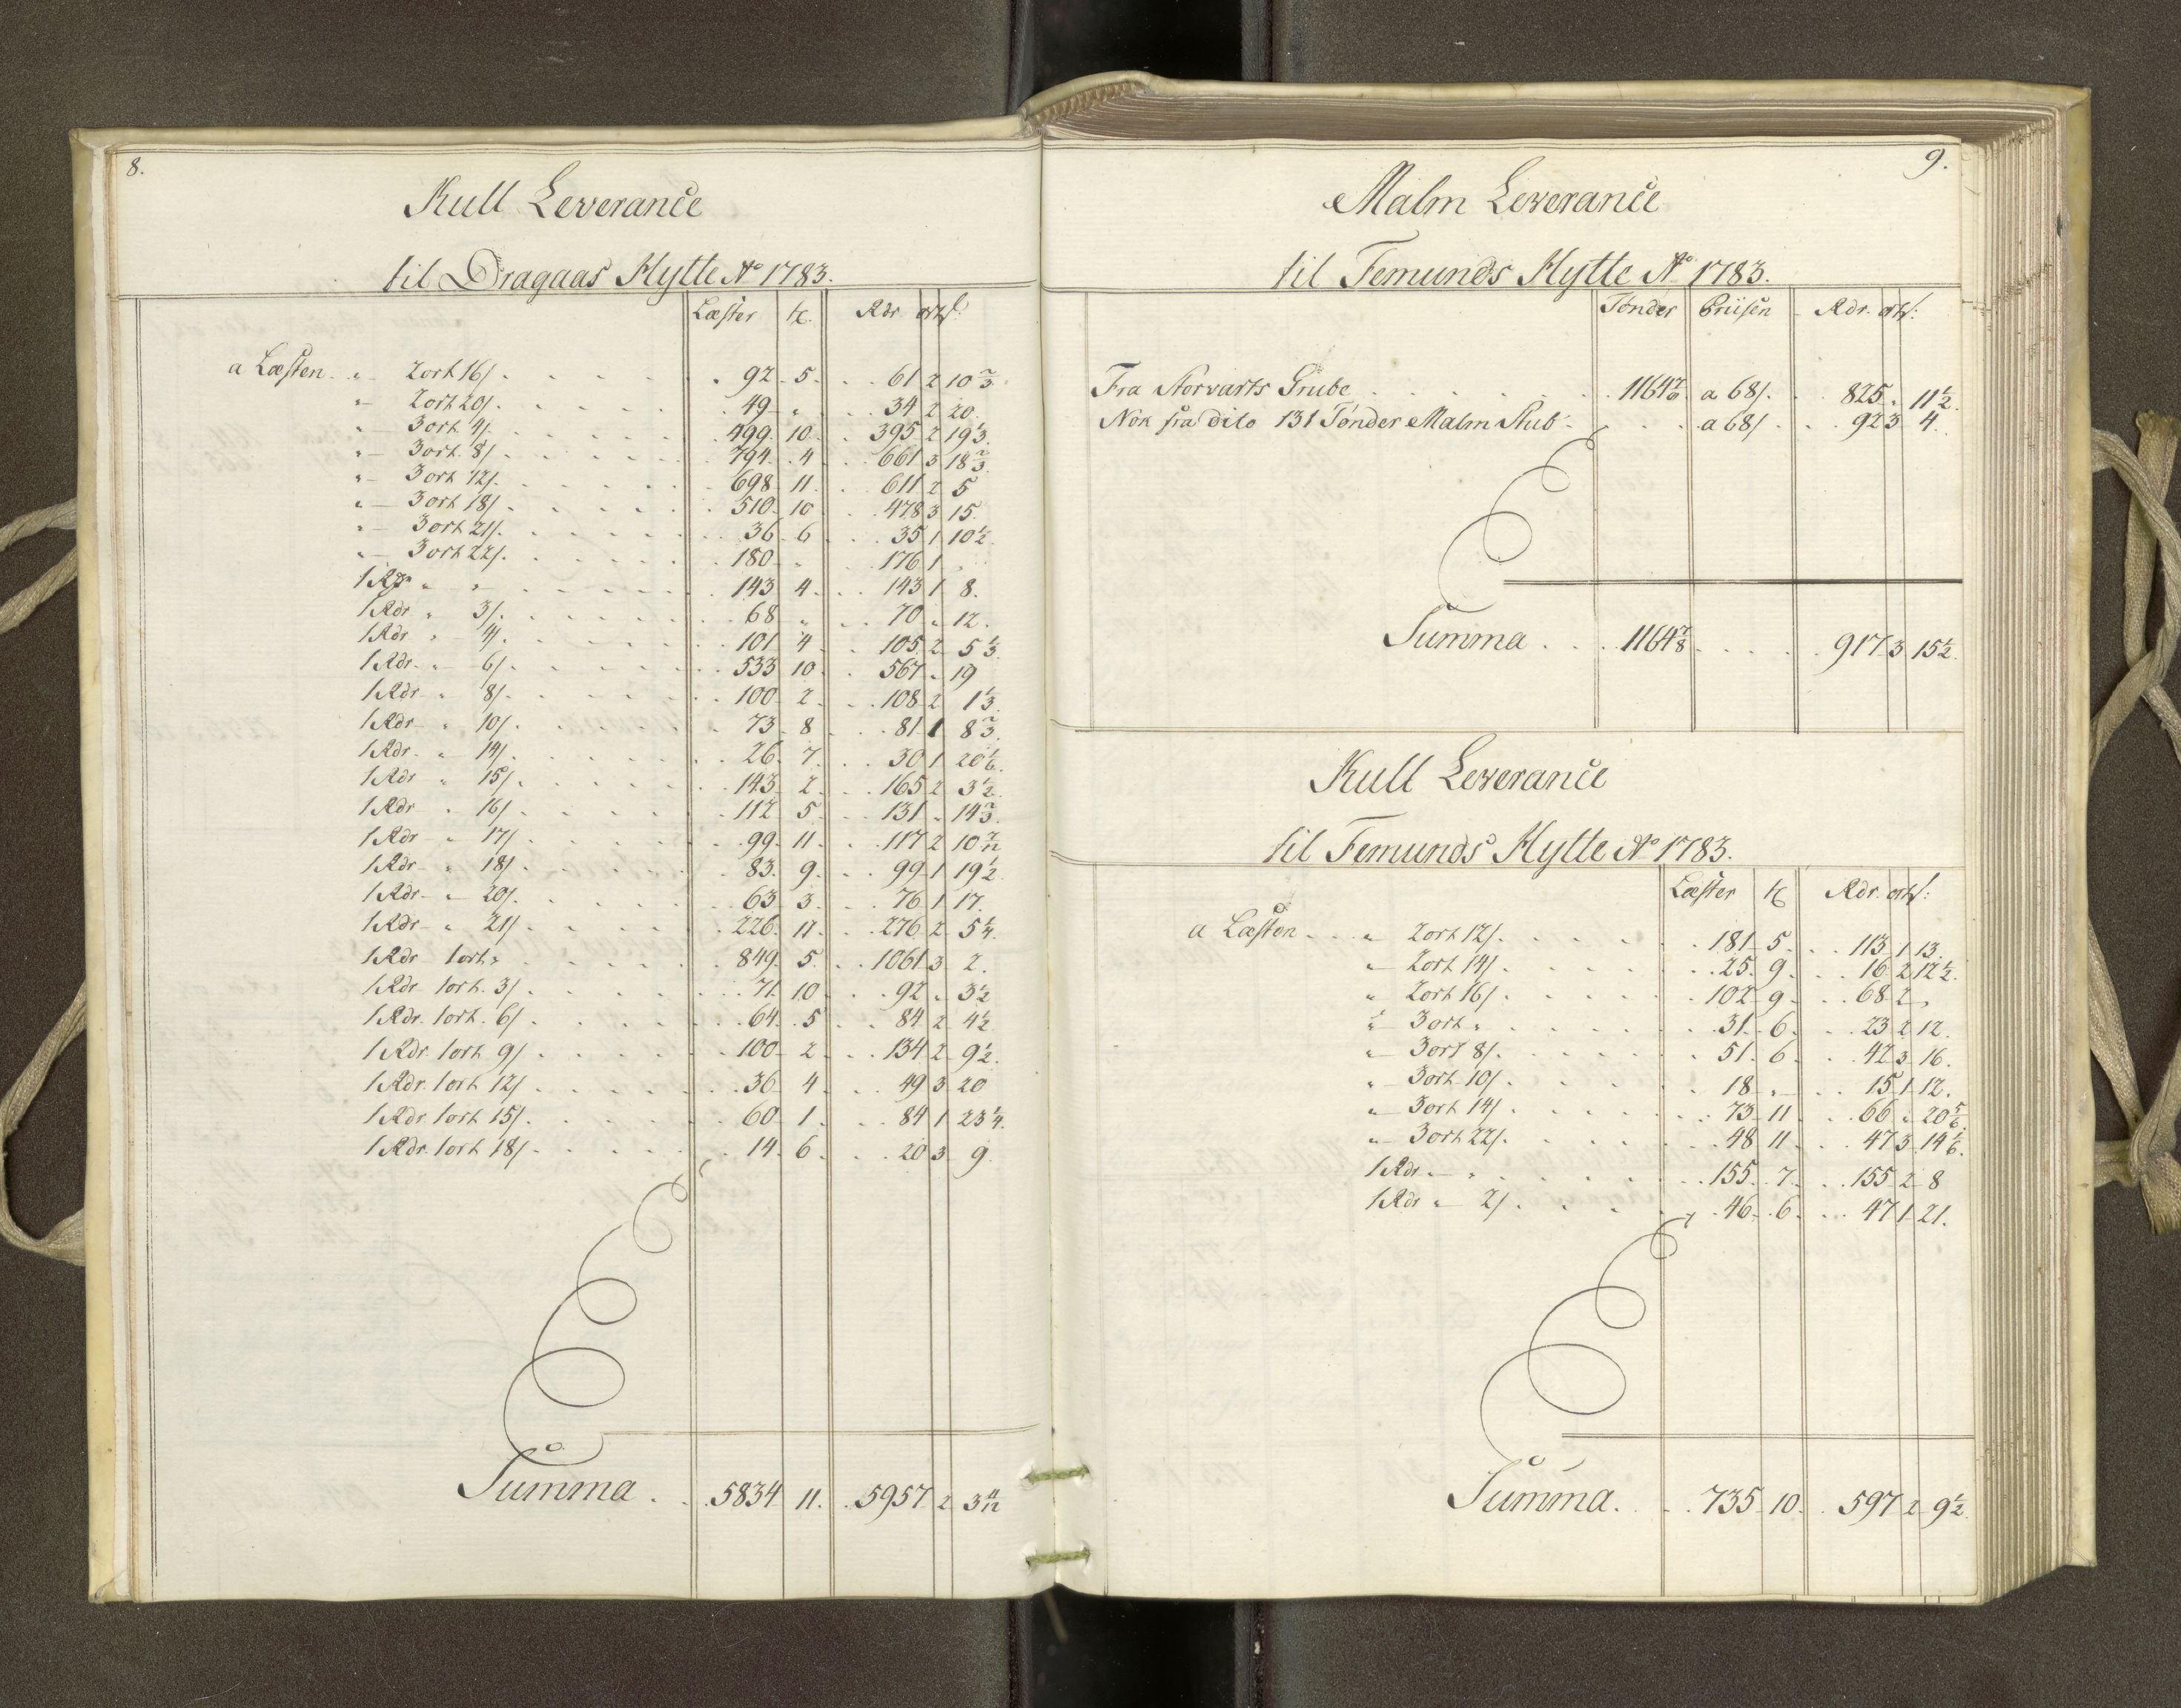 8.
Kull Leverance
til Dragaas Hytte Ao 1783.
Læster tr. Rdr ort ſ.
a Læsten " 2 ort 16ſ. 92 5. 61 2 10 2/3
" 2 ort 20ſ. 49 " 34 2 20.
" 3 ort 4ſ. 499. 10. 395 2 19 1/3.
" 3 ort 8ſ. 794. 4 661 3 18 2/3.
" 3 ort 12ſ. 698 11. 611 2 5
" 3 ort 18ſ. 510. 10 478 3 15.
" 3 ort 21ſ. 36 6 35 1 10 1/2
" 3 ort 22ſ. 180 " 176 1 "
1 Rdr " " 143 4. 143 1 8.
1 Rdr " 3ſ. 68 " 70 " 12.
1 Rdr " 4ſ. 101 4 105 2 5 1/3
1 Rdr. " 6ſ. 533 10 567 " 19
1 Rdr " 8ſ. 100 2 108 2 1 1/3.
1 Rdr " 10ſ. 73 8 81 1 8 2/3.
1 Rdr. " 14ſ. 26 7. 30 1 20 1/6.
1 Rdr " 15ſ. 143 2 165 2 3 1/2
1 Rdr " 16ſ. 112 5 131 " 14 2/3.
1 Rdr " 17ſ. 99. 11. 117 2 10 7/12
1 Rdr " 18ſ. 83. 9. 99 1 19 1/2
1 Rdr " 20ſ. 63 3. 76 1 17.
1 Rdr " 21ſ. 226. 11. 276 2 5 1/4.
1 Rdr 1 ort " 849. 5. 1061 3 2.
1 Rdr 1 ort. 3ſ. 71. 10 92 " 3 1/2
1 Rdr. 1 ort. 6ſ. 64. 5 84 2 4 1/2
1 Rdr. 1 ort 9ſ. 100 2 134 2 9 1/2.
1 Rdr. 1 ort 12ſ. 36 4 49 3 20
1 Rdr. 1 ort 15ſ. 60 1 84 1 23 1/4.
1 Rdr. 1 ort 18ſ. 14 6. 20 3 9
Summa. 5834 11. 5957 2 3 11/12
9.
Malm Leverance
til Femunds Hytte Ao 1783.
Tønder Priisen Rdr. ort ſ.
Fra Storvarts Grube 1164 7/8 a 68ſ. 825 " 11 1/2.
Nok fra dito 131 Tønder Malm Stub a 68ſ. 92 3 4.
Summa 1164 7/8 917 3 15 1/2.
Kull Leverance
til Femunds Hytte Ao 1783.
Læster tr Rdr. ort ſ.
a Læsten " 2 ort 12ſ. 181 5. 113 1 13.
" 2 ort 14ſ. 25. 9. 16 2 12 1/2.
" 2 ort 16ſ. 102 9 68 2 "
" 3 ort " 31. 6. 23 2 12.
" 3 ort 8ſ. 51. 6. 42 3 16.
" 3 ort 10ſ. 18 " 15 1 12.
" 3 ort 14ſ. 73 11 66 " 20 5/6.
" 3 ort 22ſ. 48 11 47 3 14 1/6.
1 Rdr " " 155. 7. 155 2 8
1 Rdr " 2ſ. 46 6. 47 1 21.
Summa. 735 10. 597 2 9 1/2.